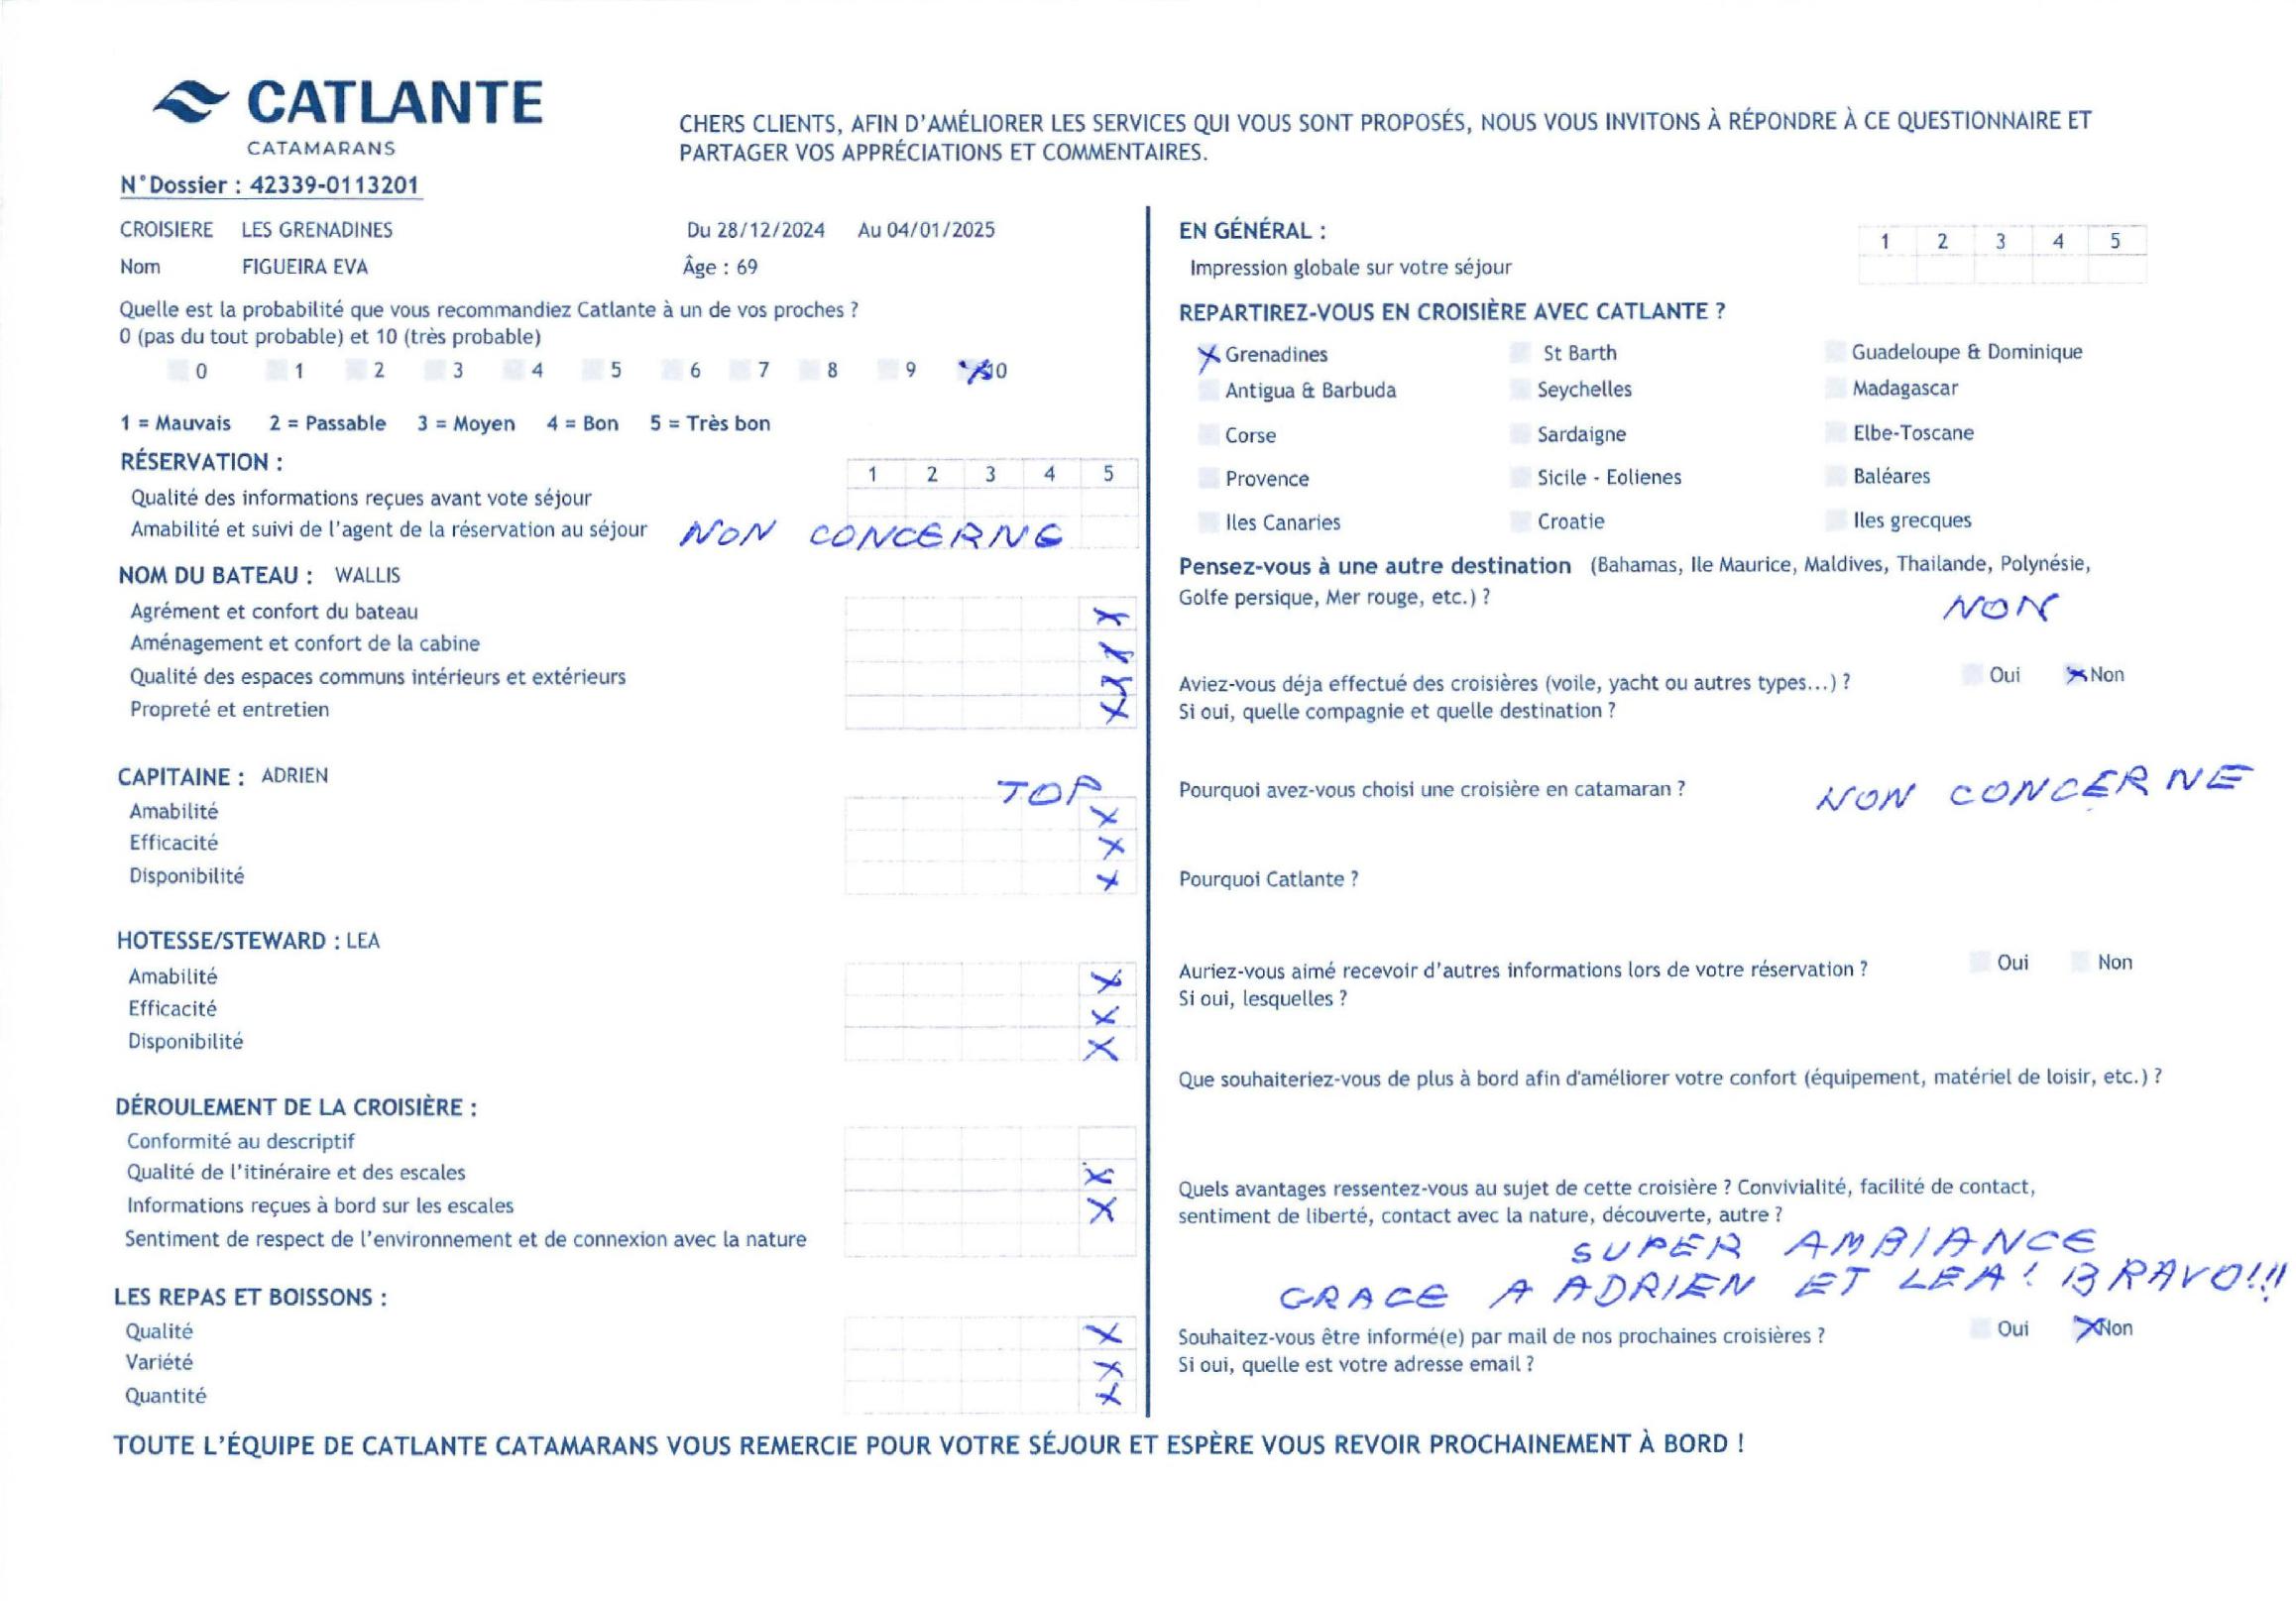 CATLANTE
CATAMARANS
CHERS CLIENTS, AFIN D'AMÉLIORER LES SERVICES QUI VOUS SONT PROPOSÉS, NOUS VOUS INVITONS À RÉPONDRE À CE QUESTIONNAIRE ET
PARTAGER VOS APPRÉCIATIONS ET COMMENTAIRES.
N°Dossier : 42339-0113201
CROISIERE LES GRENADINES Du 28/12/2024 Au 04/01/2025
Nom FIGUEIRA EVA Âge : 69
Quelle est la probabilité que vous recommandiez Catlante à un de vos proches ?
0 (pas du tout probable) et 10 (très probable)
0 1 2 3 4 5 6 7 8 9 X 10
1 = Mauvais 2 = Passable 3 = Moyen 4 = Bon 5 = Très bon
RÉSERVATION :
1 2 3 4 5
Qualité des informations reçues avant vote séjour
Amabilité et suivi de l'agent de la réservation au séjour NON CONCERNE
NOM DU BATEAU : WALLIS
Agrément et confort du bateau X
Aménagement et confort de la cabine X
Qualité des espaces communs intérieurs et extérieurs X
Propreté et entretien X
CAPITAINE : ADRIEN TOP
Amabilité X
Efficacité X
Disponibilité X
HOTESSE/STEWARD : LEA
Amabilité X
Efficacité X
Disponibilité X
DÉROULEMENT DE LA CROISIÈRE :
Conformité au descriptif
Qualité de l'itinéraire et des escales X
Informations reçues à bord sur les escales X
Sentiment de respect de l'environnement et de connexion avec la nature
LES REPAS ET BOISSONS :
Qualité X
Variété X
Quantité X
EN GÉNÉRAL :
1 2 3 4 5
Impression globale sur votre séjour
REPARTIREZ-VOUS EN CROISIÈRE AVEC CATLANTE ?
X Grenadines St Barth Guadeloupe & Dominique
Antigua & Barbuda Seychelles Madagascar
Corse Sardaigne Elbe-Toscane
Provence Sicile - Eolienes Baléares
Iles Canaries Croatie Iles grecques
Pensez-vous à une autre destination (Bahamas, Ile Maurice, Maldives, Thailande, Polynésie,
Golfe persique, Mer rouge, etc.) ?
NON
Aviez-vous déja effectué des croisières (voile, yacht ou autres types...) ? Oui X Non
Si oui, quelle compagnie et quelle destination ?
Pourquoi avez-vous choisi une croisière en catamaran ? NON CONCERNE
Pourquoi Catlante ?
Auriez-vous aimé recevoir d'autres informations lors de votre réservation ? Oui Non
Si oui, lesquelles ?
Que souhaiteriez-vous de plus à bord afin d'améliorer votre confort (équipement, matériel de loisir, etc.) ?
Quels avantages ressentez-vous au sujet de cette croisière ? Convivialité, facilité de contact,
sentiment de liberté, contact avec la nature, découverte, autre ?
SUPER AMBIANCE
GRACE A ADRIEN ET LEA ! BRAVO!!!
Souhaitez-vous être informé(e) par mail de nos prochaines croisières ? Oui X Non
Si oui, quelle est votre adresse email ?
TOUTE L'ÉQUIPE DE CATLANTE CATAMARANS VOUS REMERCIE POUR VOTRE SÉJOUR ET ESPÈRE VOUS REVOIR PROCHAINEMENT À BORD !